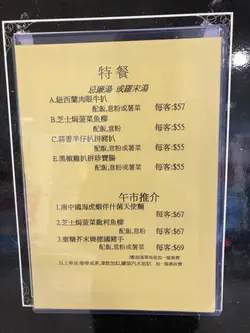 特餐
忌廉湯 或羅宋湯
A.紐西蘭肉眼牛扒
配飯,意粉或薯菜 每客:$57
B.芝士焗菠菜魚柳
配飯,意粉 每客:$55
C.蒜香羊仔扒拼豬扒
配飯,意粉或薯菜 每客:$55
E.黑椒雞扒拼珍寶腸
配飯,意粉或薯菜 每客:$55
午市推介
1.南中國海虎蝦伴什菌天使麵
每客:$67
2.芝士焗菠菜龍利魚柳
配飯,意粉 每客:$67
3.蜜糖芥末燒德國豬手
配飯,意粉或薯菜 每客:$69